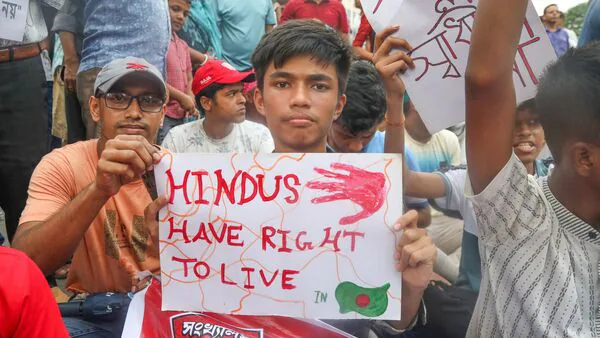 নয়
HINDUS
HAVE RIGHT
TO LIVE
IN